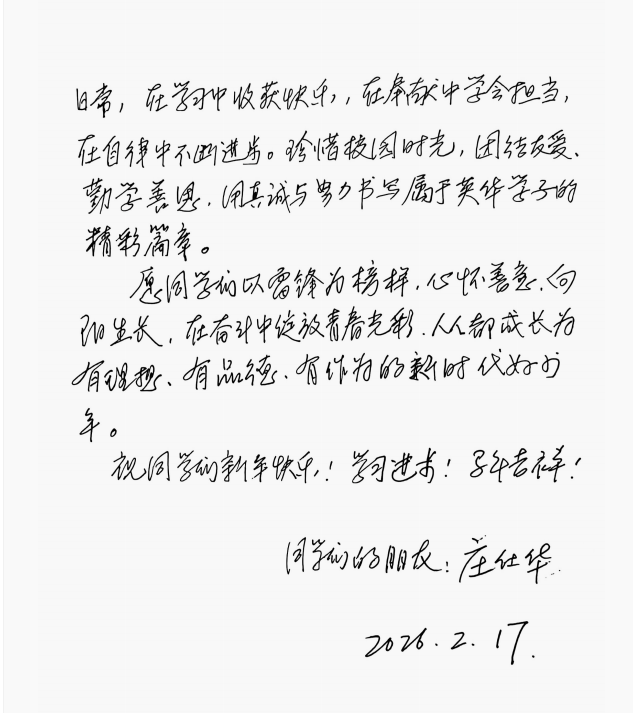 日常，在学习中收获快乐，在奉献中学会担当，
在自律中不断进步。珍惜校园时光，团结友爱、
勤学善思，用真诚与努力书写属于英华学子的
精彩篇章。
愿同学们以雷锋为榜样，心怀善意、向
阳生长，在奋斗中绽放青春光彩，人人都成长为
有理想、有品德、有作为的新时代好少
年。
祝同学们新年快乐！学习进步！马年吉祥！
同学们的朋友：庄仕华
2026.2.17.